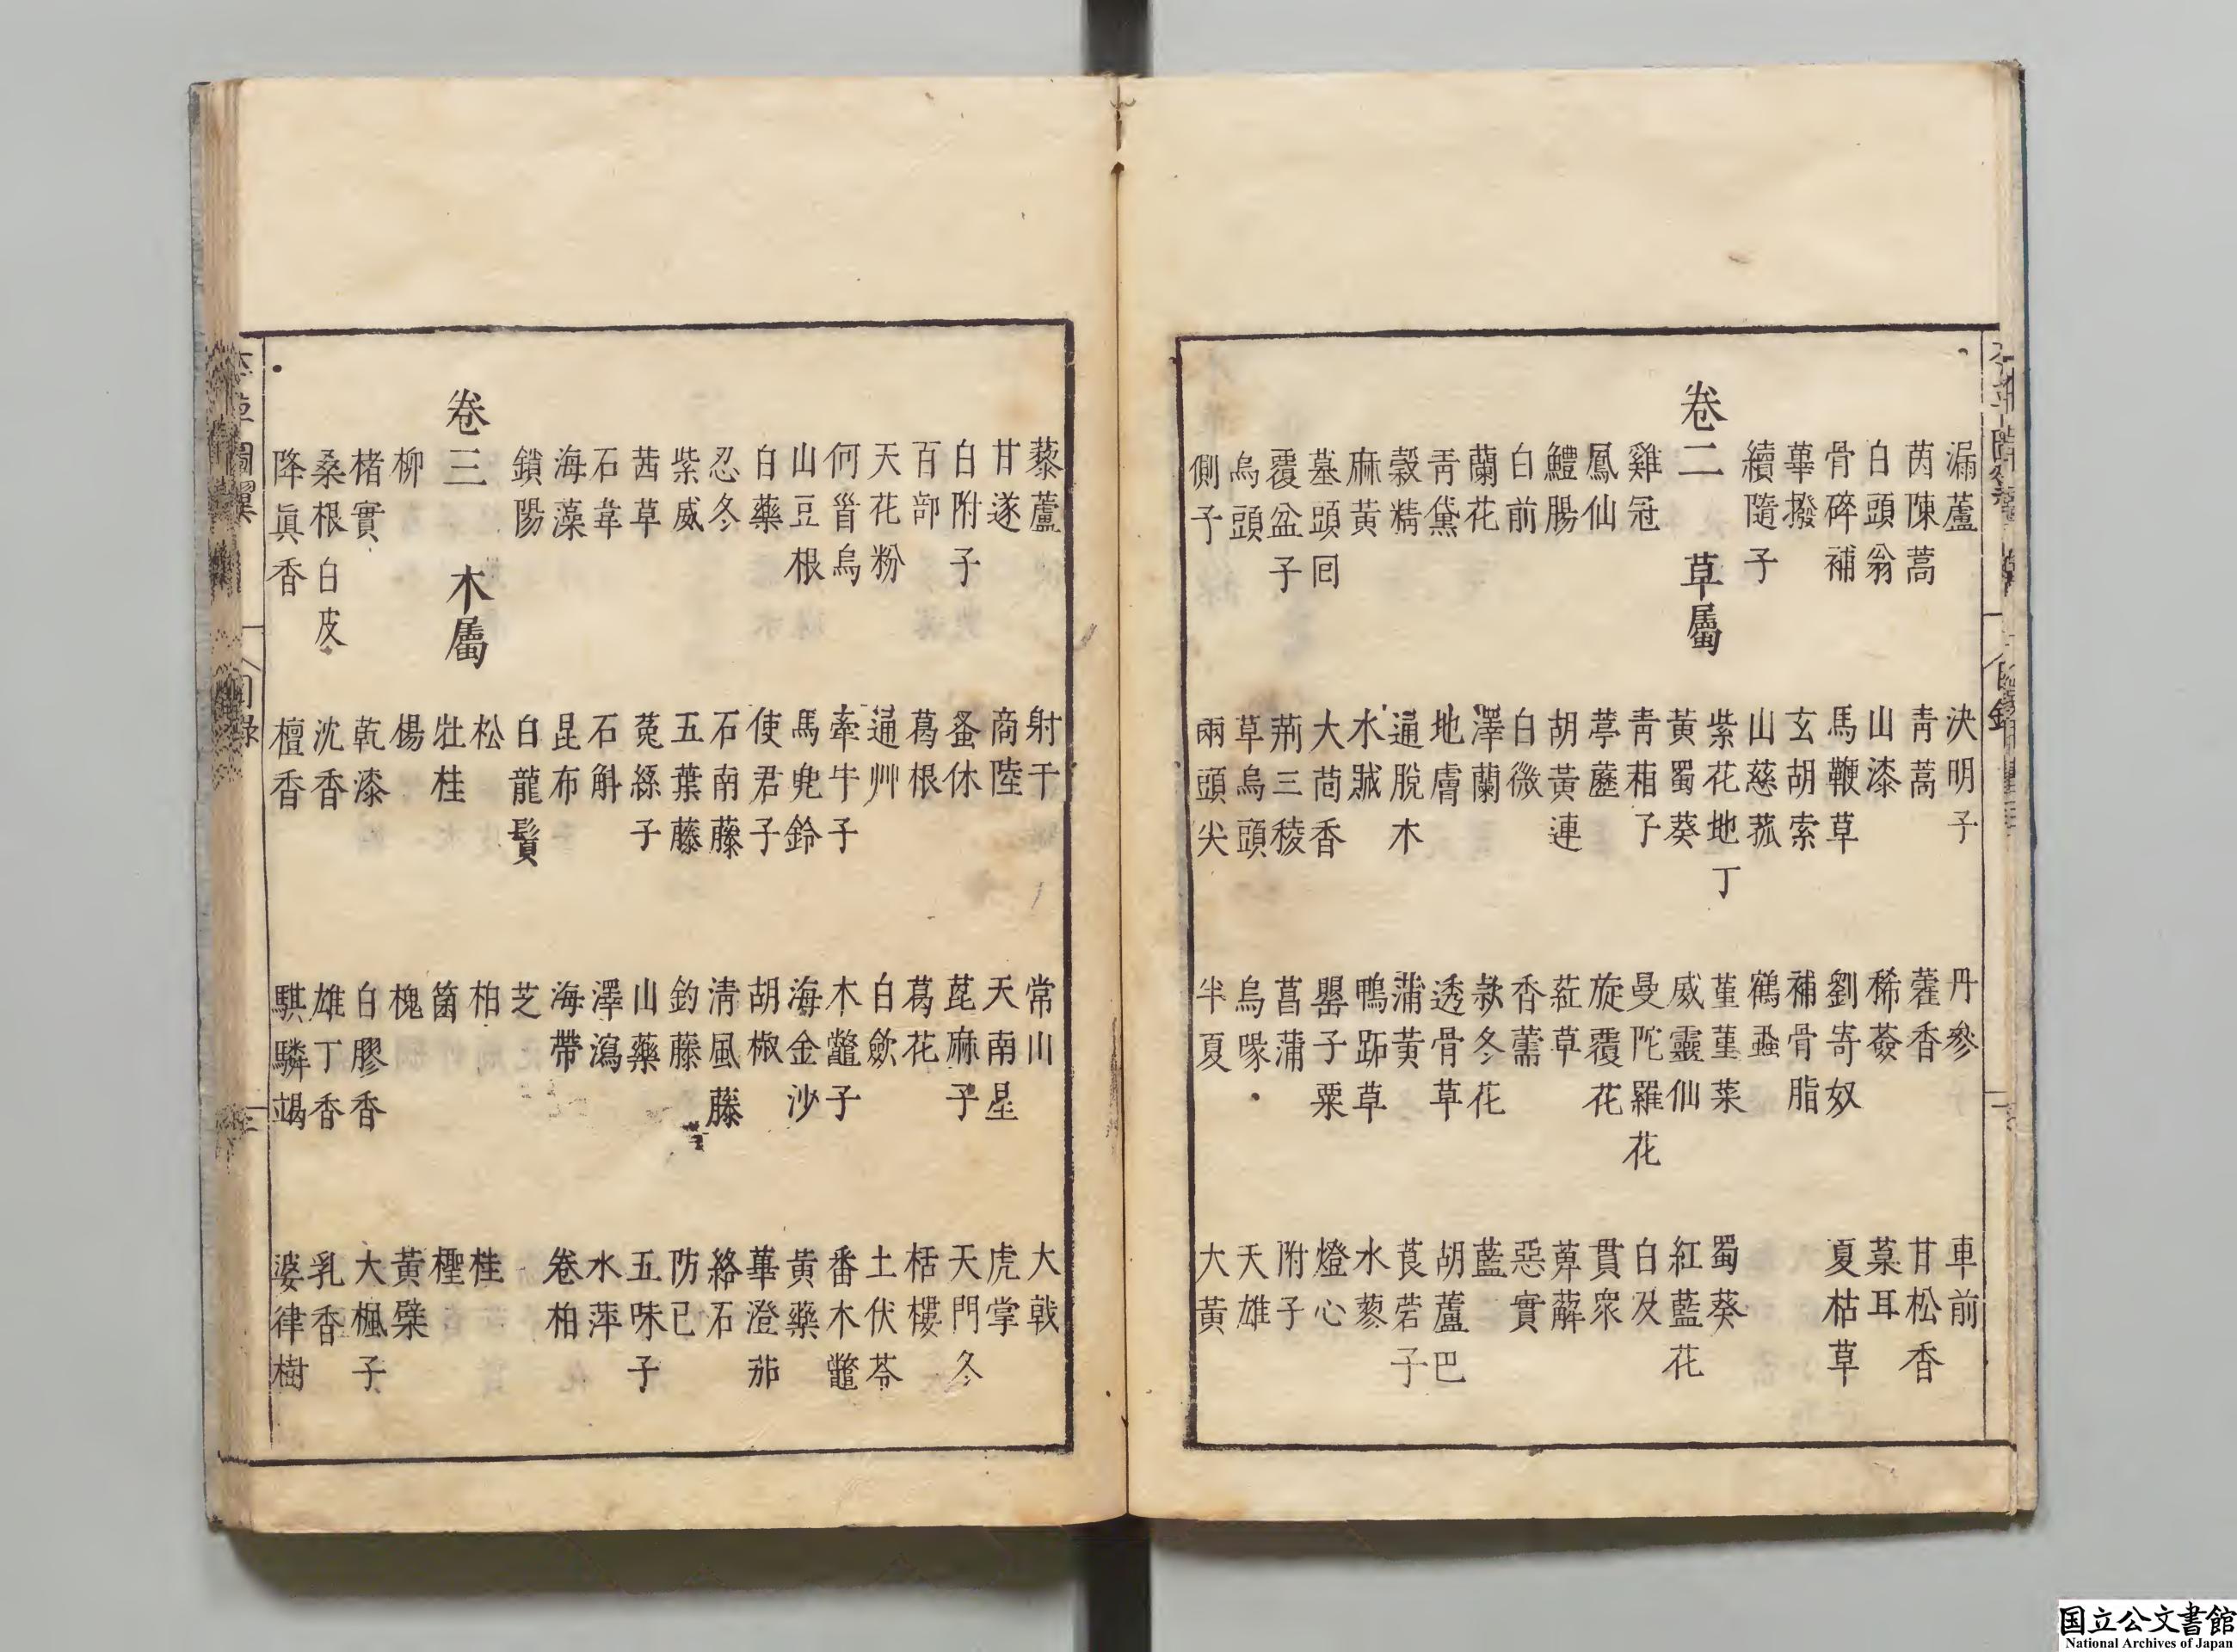 漏蘆 決明子 丹參 車前
茵陳蒿 青蒿 藿香 甘松香
白頭翁 山漆 稀薟 菒耳
骨碎補 馬鞭草 劉寄奴 夏枯草
蓽撥 玄胡索 補骨脂
續隨子 山慈菰 鶴蝨
卷二 草屬
紫花地丁 菫菫菜 蜀葵
黃蜀葵 威靈仙 紅藍花
雞冠 青葙子 曼陀羅花 白及
鳳仙 葶藶 旋覆花 貫衆
鱧腸 胡黃連 葒草 萆薢
白前 白微 香薷 惡實
蘭花 澤蘭 款冬花 藍
靑黛 地膚 透骨草 胡蘆巴
穀精 通脫木 蒲黃 莨菪子
麻黃 水蘵 鴨跖草 水蓼
墓頭囘 大茴香 罌子粟 燈心
覆盆子 荊三稜 菖蒲 附子
烏頭 草烏頭 烏喙 天雄
側子 兩頭尖 半夏 大黃
藜蘆 射干 常山 大戟
甘遂 商陸 天南星 虎掌
白附子 蚤休 萞麻子 天門冬
百部 葛根 葛花 栝樓
天花粉 通艸 白歛 土伏苓
何首烏 牽牛子 木鼈子 番木鼈
山豆根 馬兜鈴 海金沙 黃藥
白藥 使君子 胡椒 蓽澄茄
忍冬 石南藤 淸風藤 絡石
紫威 五葉藤 釣藤 防已
茜草 菟絲子 山藥 五味子
石韋 石斛 澤瀉 水萍
海藻 昆布 海帶 卷柏
鎖陽 白龍鬚 芝
卷三 木屬
松 柏 桂
壯桂 箘 檉
柳 楊 槐 黃檗
楮實 乾漆 白膠香 大楓子
桑根白皮 沈香 雄丁香 乳香
降眞香 檀香 騏驎竭 婆律樹
国立公文書館
National Archives of Japan